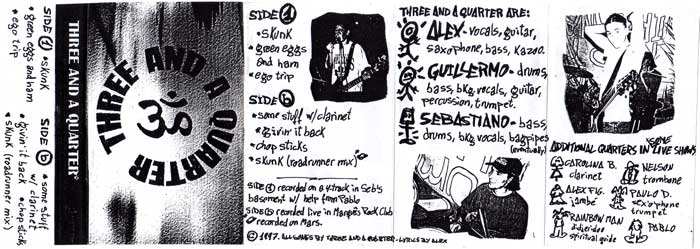 SIDE 1
• skunk
• green eggs and ham
• ego trip
SIDE b
• some stuff w/ clarinet
• givin' it back
• chop sticks
• skunk (roadrunner mix)
THREE AND A QUARTER
THREE AND A QUARTER
ॐ
SIDE 1
• skunk
• green eggs
and ham
• ego trip
SIDE b
• some stuff w/clarinet
• givin' it back
• chop sticks
• skunk (roadrunner mix)
SIDE 1 recorded on 4-track in Seb's
basement w/ help from Pablo
SIDE b recorded live in
Rock Club
recorded on Mars.
© 1997. ALL SONGS BY THREE AND A QUARTER - LYRICS BY ALEX
THREE AND A QUARTER ARE:
ALEX - vocals, guitar,
saxophone, bass, kazoo.
GUILLERMO - drums,
bass, bkg vocals, guitar,
percussion, trumpet.
SEBASTIANO - bass,
drums, bkg vocals, bagpipes
(eventually)
ADDITIONAL QUARTERS IN SOME LIVE SHOWS
CAROLINA B.
clarinet
ALEX FIG.
jambé
RAINBOW MAN
didjeridoo
spiritual guide
NELSON
trombone
PAULO D.
saxophone
trumpet
PABLO